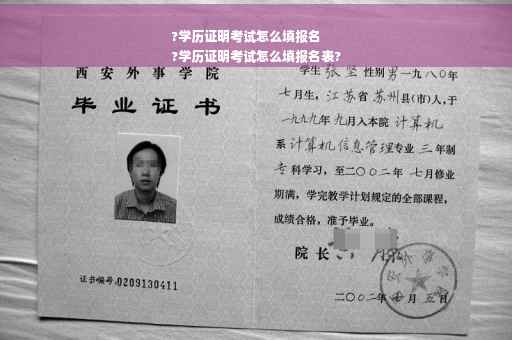 ?学历证明考试怎么填报名
?学历证明考试怎么填报名表?
西安外事学院
毕业证书
证书编号:0209130411
学生张坚性别男一九八〇年
七月生,江苏省苏州县(市)人,于
一九九九年九月入本院计算机
系计算机信息管理专业三年制
专科学习,至二〇〇二年七月修业
期满,学完教学计划规定的全部课程,
成绩合格,准予毕业。
院长
二〇〇二年七月五日